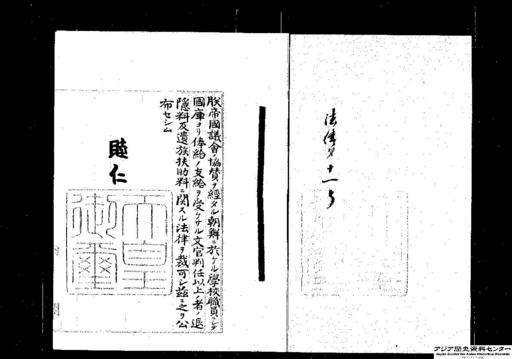 法律第十一号
朕帝國議會ノ協賛ヲ經タル朝鮮ニ於ケル學校職員ニシテ
國庫ヨリ俸給ノ支給ヲ受ケサル文官判任以上ノ者ノ退
隠料及遺族扶助料ニ関スル法律ヲ裁可シ茲ニ之ヲ公
布セシム
睦仁
天皇
御璽
アジア歴史資料センター
Japan Center for Asian Historical Records